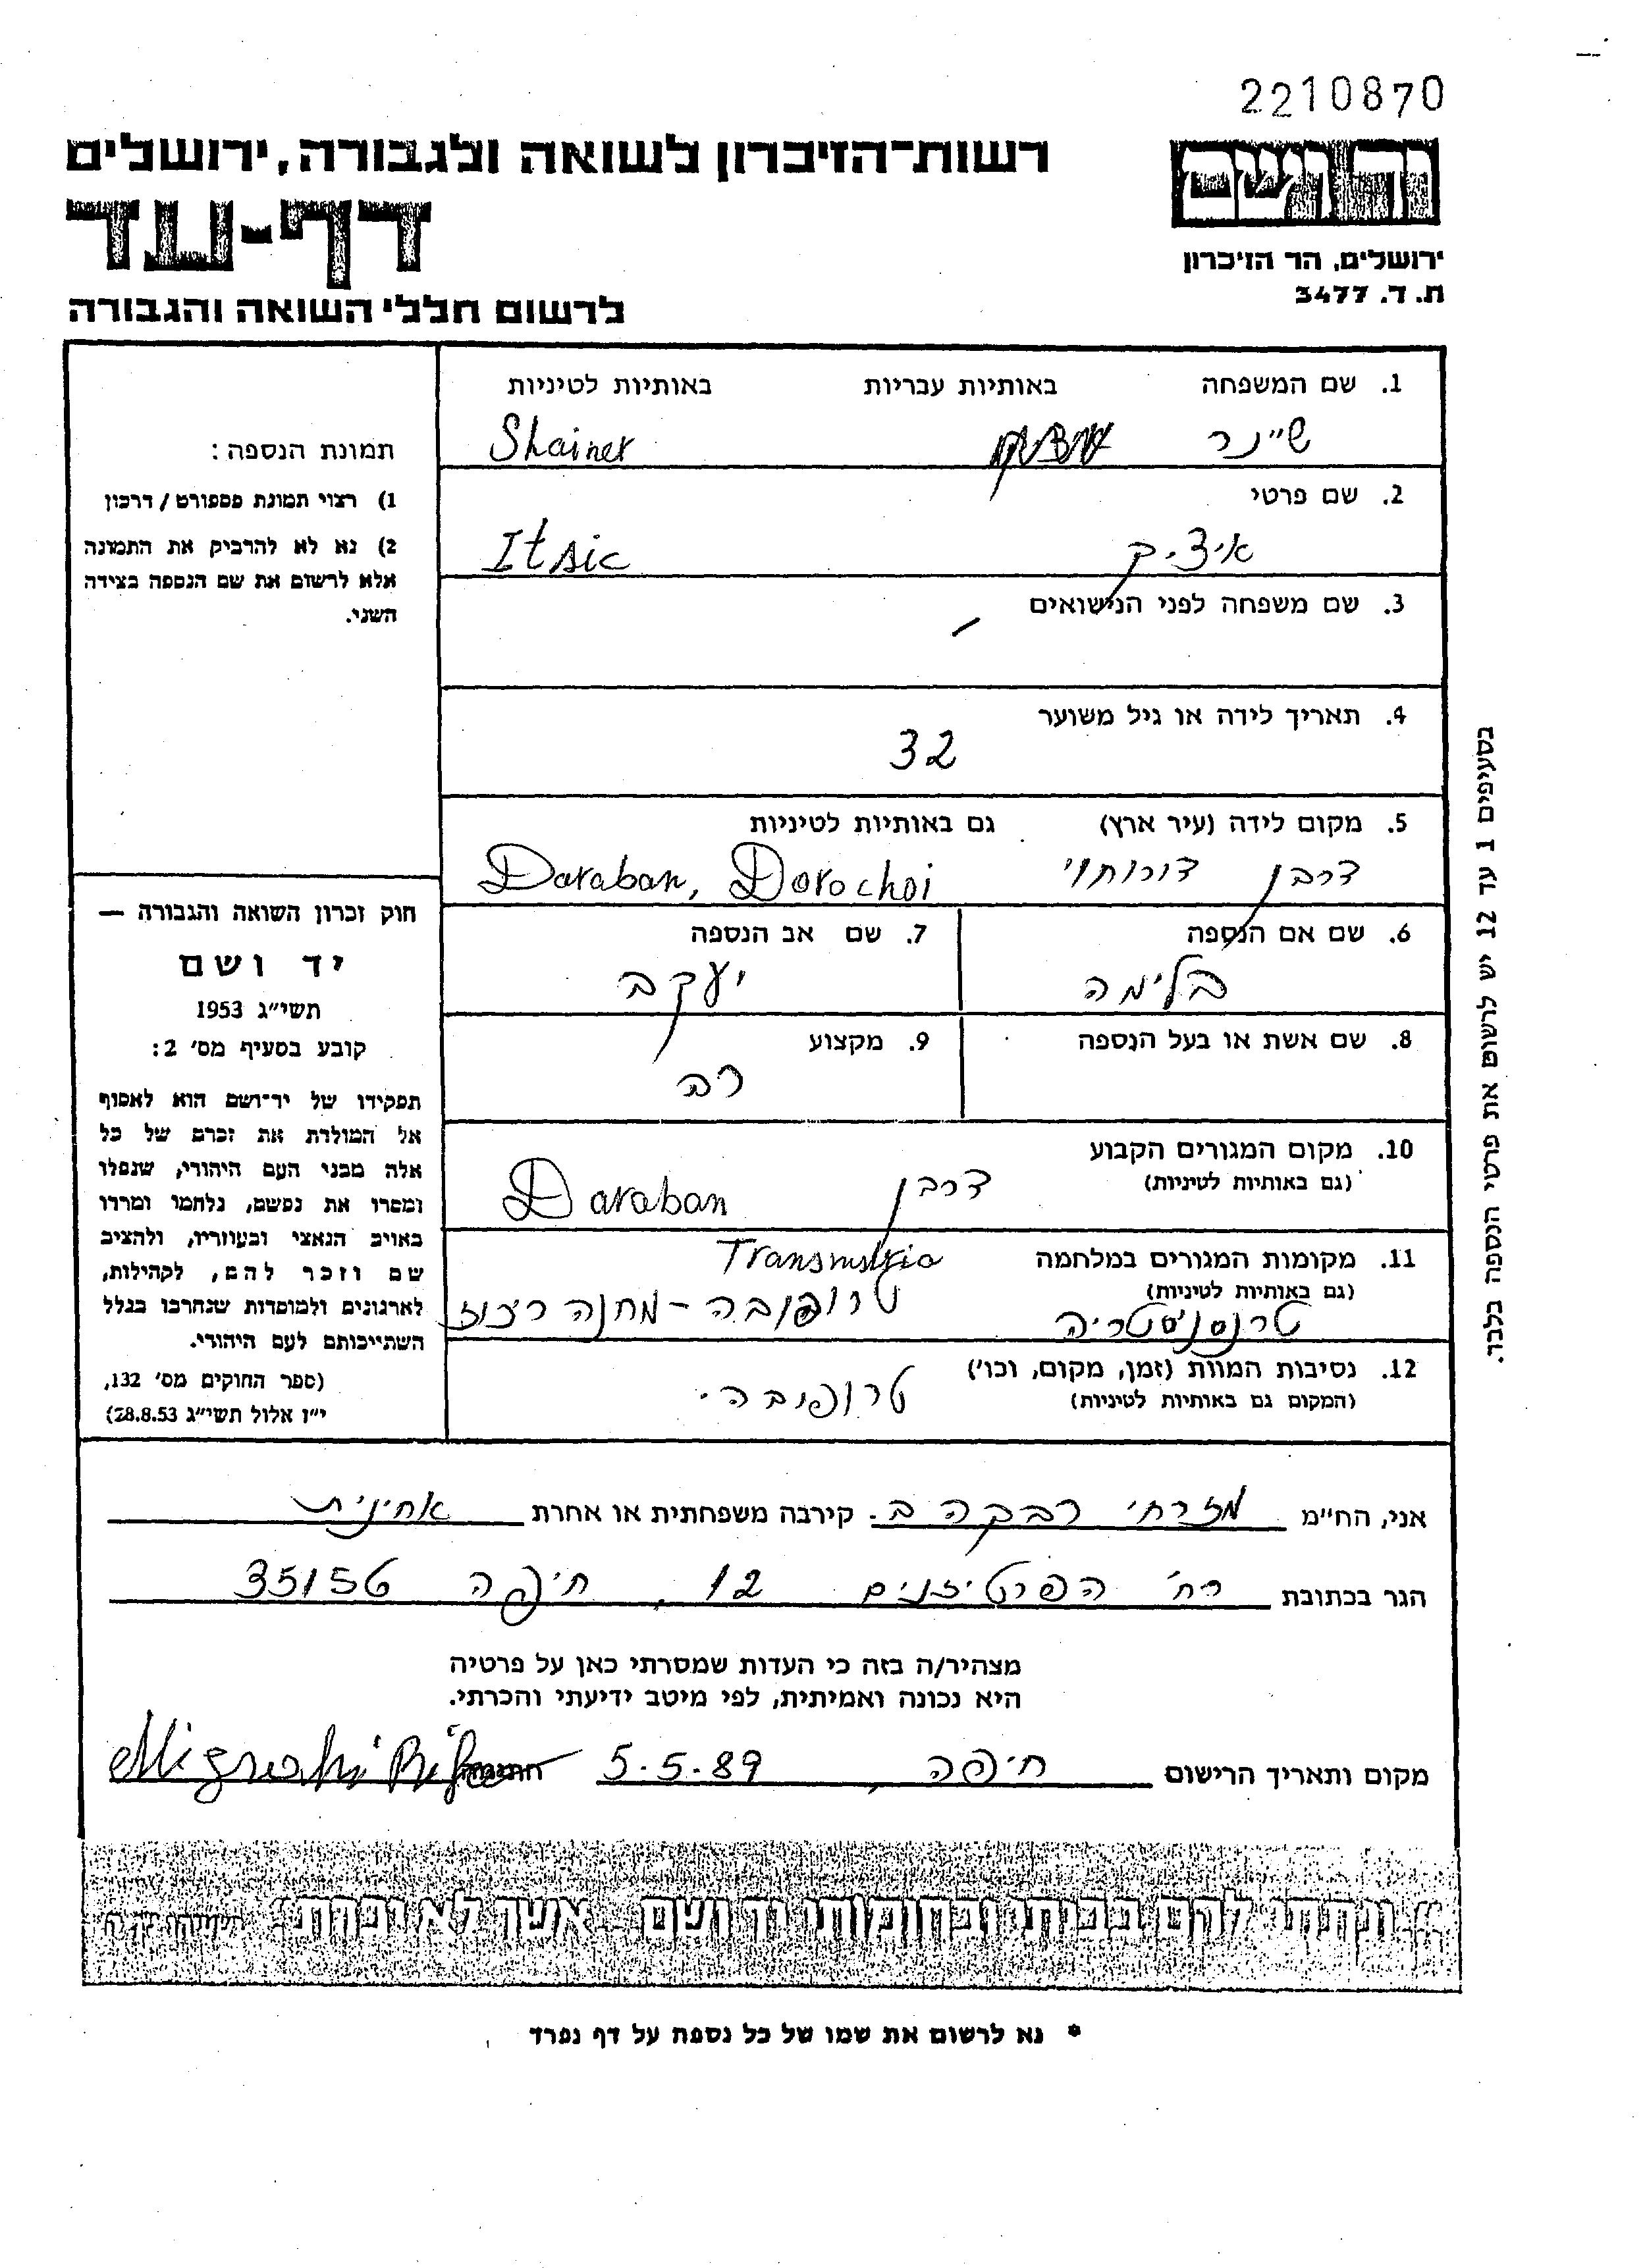 2210870
רשות־הזיכרון לשואה ולגבורה, ירושלים
יד ושם
דף-עד
ירושלים, הר הזיכרון
ת. ד. 3477
לרשום חללי השואה והגבורה
1. שם המשפחה באותיות עבריות באותיות לטיניות
שיינר Shainer
2. שם פרטי
איציק Itsic
3. שם משפחה לפני הנישואים
–
4. תאריך לידה או גיל משוער
32
5. מקום לידה (עיר ארץ) גם באותיות לטיניות
דרבן דורוחוי Daraban, Dorochoi
6. שם אם הנספה 7. שם אב הנספה
בלימה יעקב
8. שם אשת או בעל הנספה 9. מקצוע
רב
10. מקום המגורים הקבוע
(גם באותיות לטיניות) דרבן Daraban
11. מקומות המגורים במלחמה
(גם באותיות לטיניות)
טרנסניסטריה טרופובה – מחנה ריכוז
12. נסיבות המוות (זמן, מקום, וכו')
(המקום גם באותיות לטיניות) טרופובה.
תמונת הנספה:
1) רצוי תמונת פספורט / דרכון
2) נא לא להדביק את התמונה
אלא לרשום את שם הנספה בצידה
השני.
חוק זכרון השואה והגבורה —
יד ושם
תשי״ג 1953
קובע בסעיף מס׳ 2:
תפקידו של יד־ושם הוא לאסוף
אל המולדת את זכרם של כל
אלה מבני העם היהודי, שנפלו
ומסרו את נפשם, נלחמו ומרדו
באויב הנאצי ובעוזריו, ולהציב
שם וזכר להם, לקהילות,
לארגונים ולמוסדות שנחרבו בגלל
השתייכותם לעם היהודי.
(ספר החוקים מס׳ 132,
י״ז אלול תשי״ג 28.8.53)
בסעיפים 1 עד 12 יש לרשום את פרטי הנספה בלבד.
אני, הח״מ מזרחי רבקה ב. קירבה משפחתית או אחרת אחינית
הגר בכתובת רח׳ הפרטיזנים 12, חיפה 35156
מצהיר/ה בזה כי העדות שמסרתי כאן על פרטיה
היא נכונה ואמיתית, לפי מיטב ידיעתי והכרתי.
מקום ותאריך הרישום חיפה, 5.5.89 חתימה
״...ונתתי להם בביתי ובחומותי יד ושם... אשר לא יכרת״
* נא לרשום את שמו של כל נספה על דף נפרד